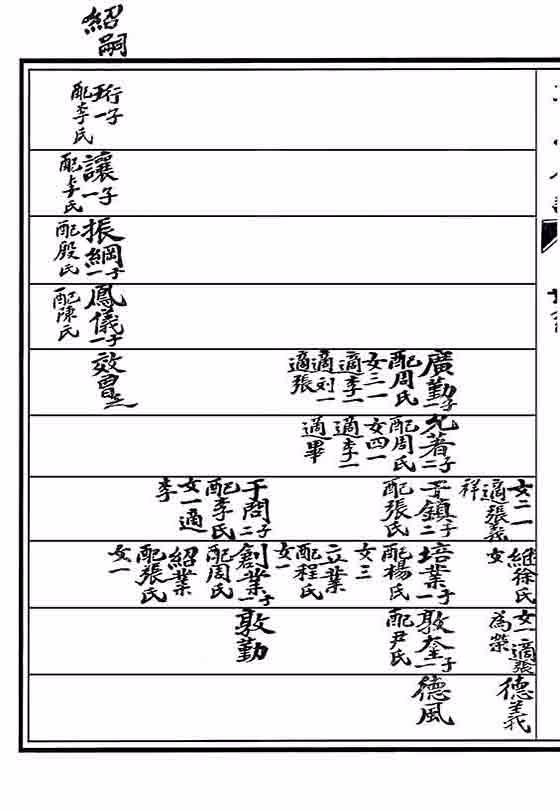 紹嗣
珩一子
配李氏
讓一子
振綱一子
配殷氏
鳳儀一子
配陳氏
廣勤一子
配周氏
女三一
適李一
適刘一
適張
效曾
允著二子
配周氏
女四一
適李一
適畢
女二一
適張義
祥
于鎮二子
配張氏
于問二子
配李氏
女一適
李
継徐氏
女
培業一子
配楊氏
女三
立業
配程氏
女一
創業一子
配周氏
紹業
配張氏
女一
女一適張
為榮
敦奎一子
配尹氏
敦勤
德義
德風